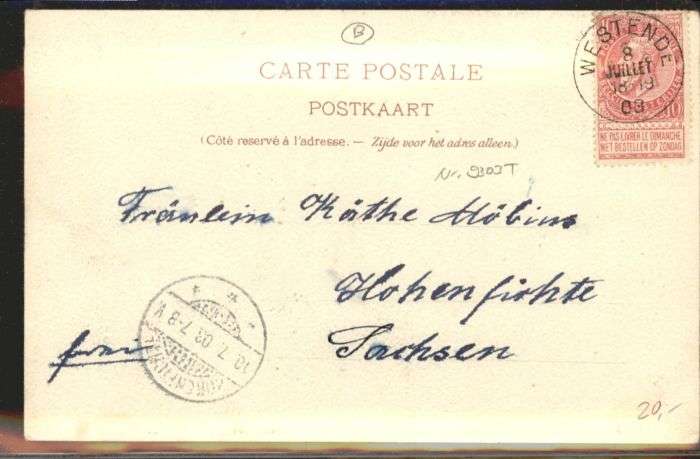 B
CARTE POSTALE
POSTKAART
(Côté reservé à l'adresse. — Zijde voor het adres alleen.)
WESTENDE
8
JUILLET
18-19
03
10
NE PAS LIVRER LE DIMANCHE
NIET BESTELLEN OP ZONDAG
Fräulein Käthe Möbius
Hohenfichte
Sachsen
frei
10.7.03.7-8 V.
HOHENFICHTE
20,-